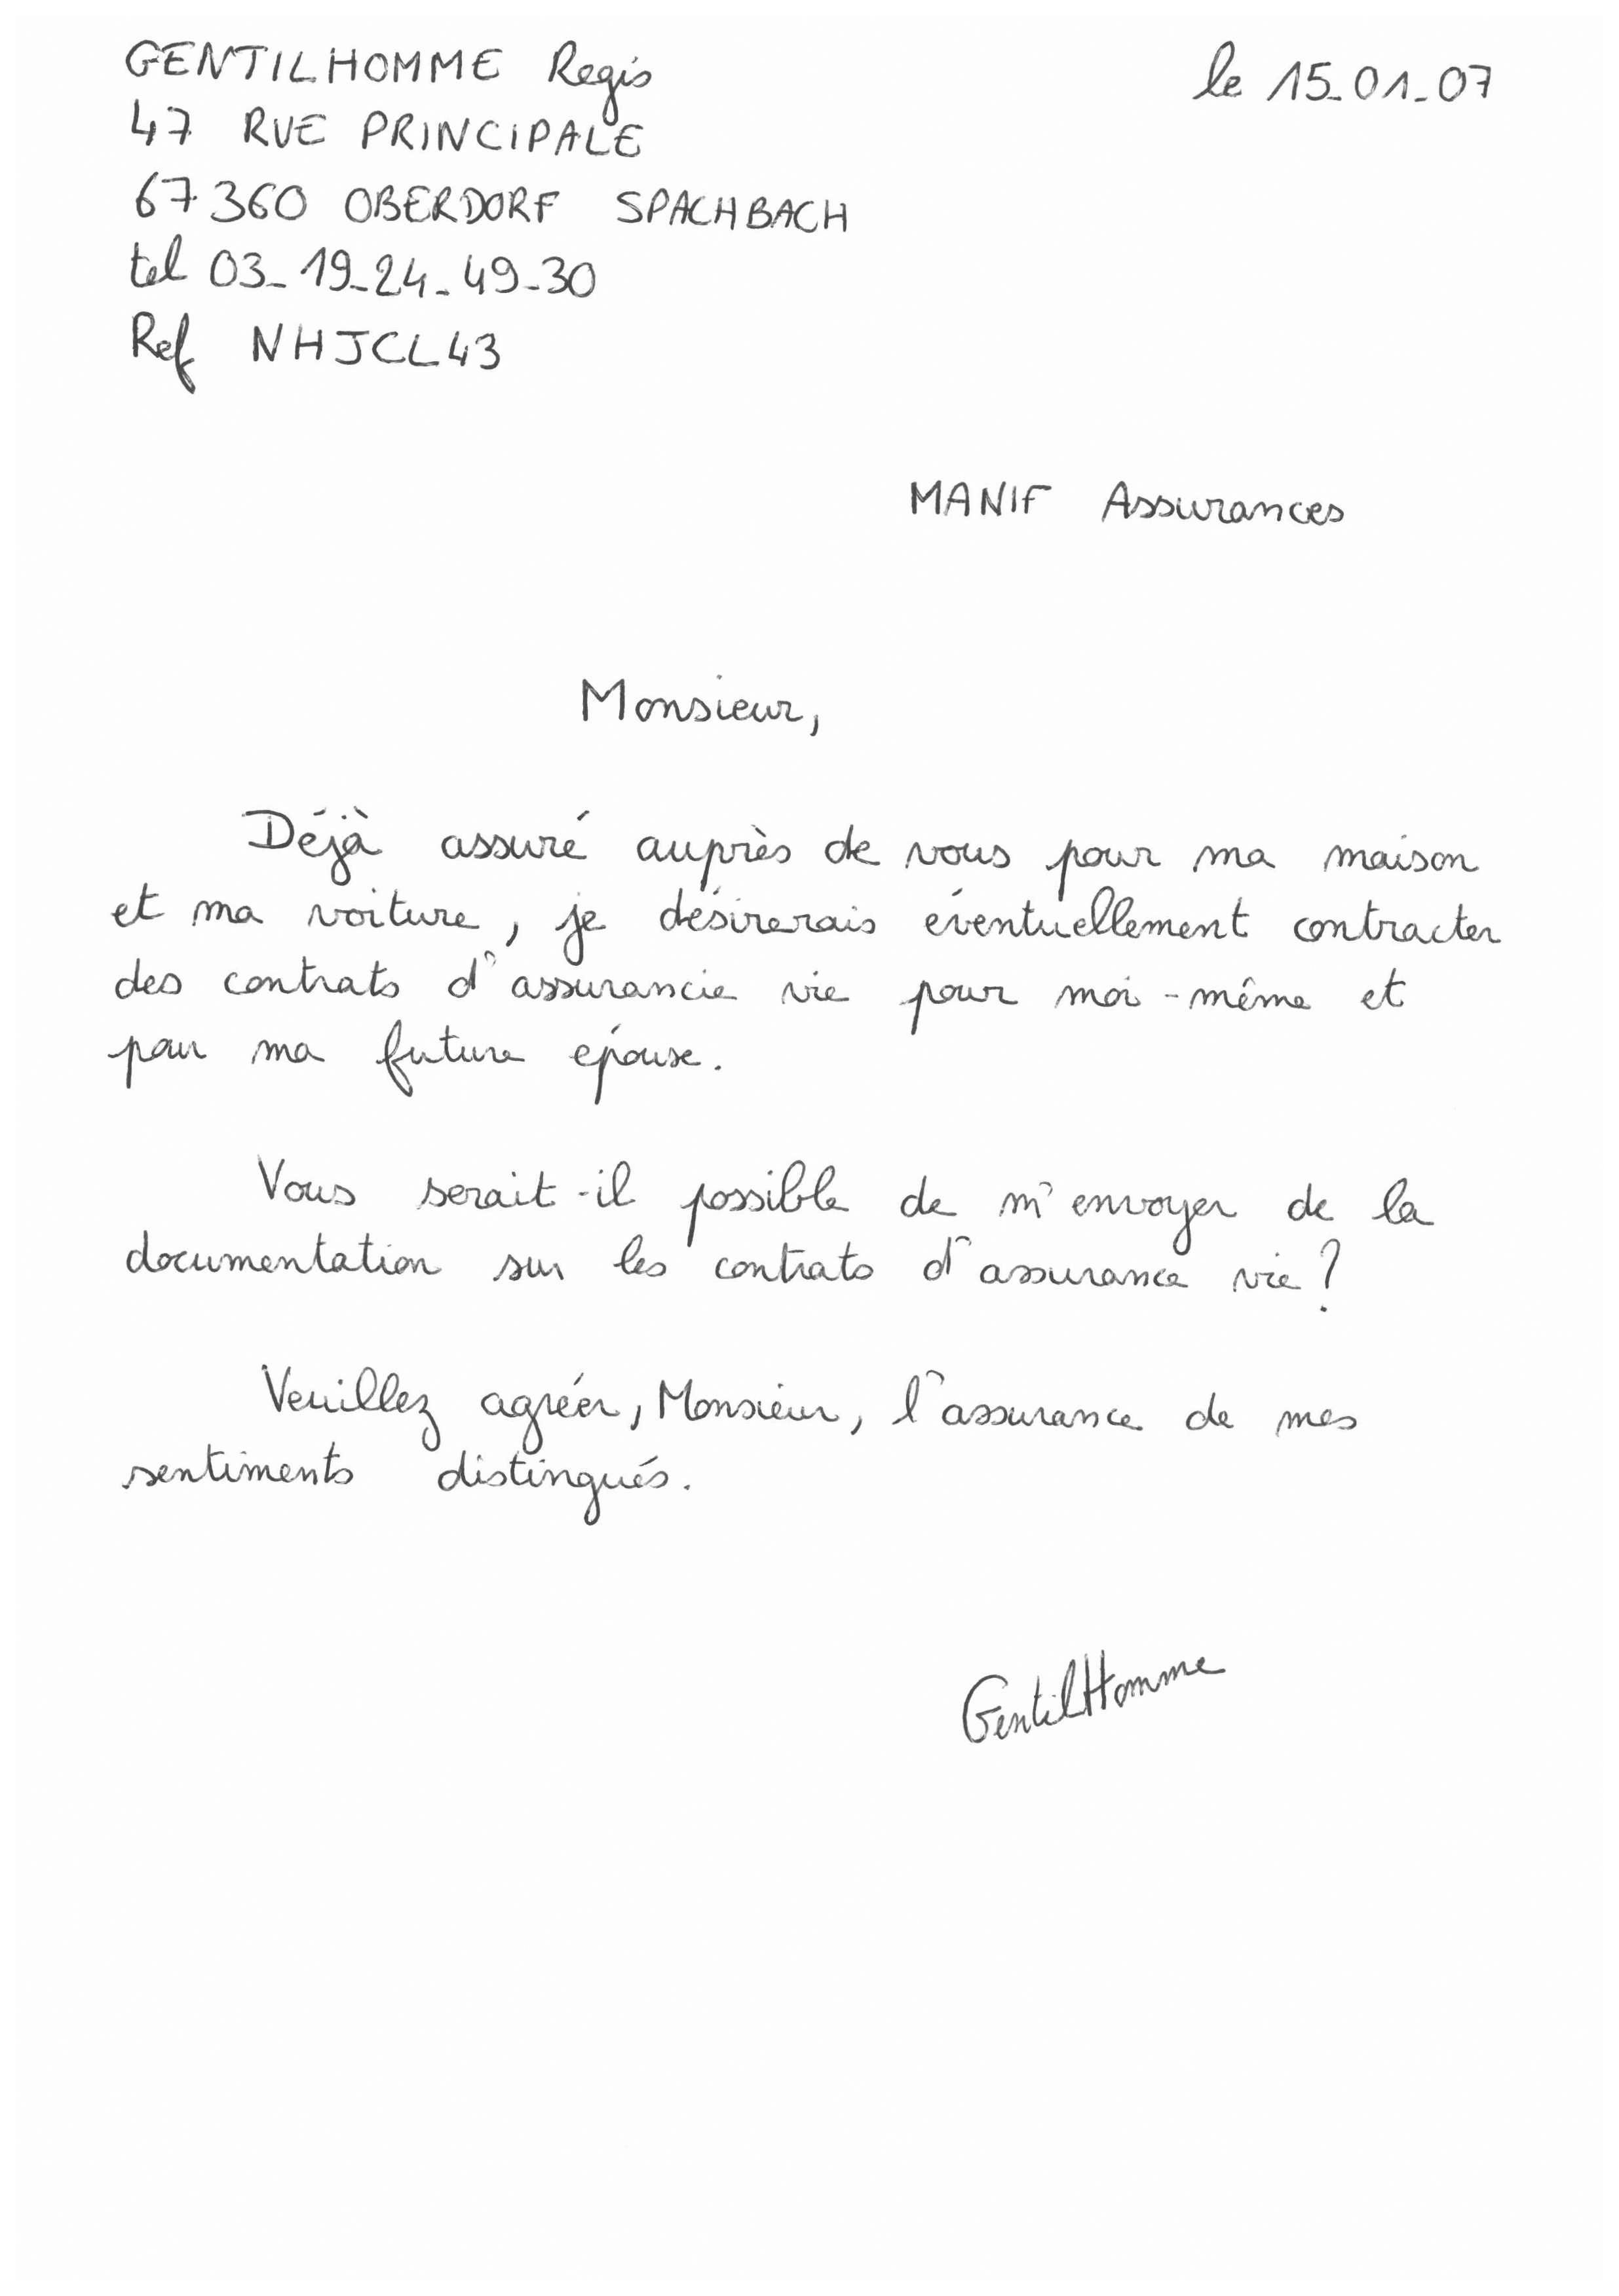 GENTILHOMME Regis
le 15-01-07
47 RUE PRINCIPALE
67360 OBERDORF SPACHBACH
tel 03-19-24-49-30
Ref NHJCL43
MANIF Assurances
Monsieur,
Déjà assuré auprès de vous pour ma maison
et ma voiture, je désirerais éventuellement contracter
des contrats d'assurancie vie pour moi-même et
pour ma future épouse.
Vous serait-il possible de m'envoyer de la
documentation sur les contrats d'assurance vie ?
Veuillez agréer, Monsieur, l'assurance de mes
sentiments distingués.
GentilHomme